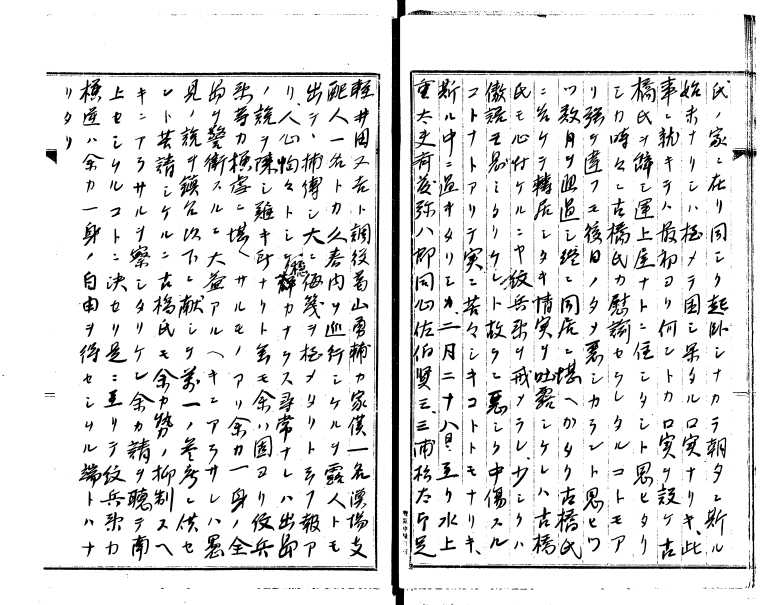 氏ノ家ニ在リ同シク起臥シナカラ朝夕ニ斯ル
始末ナリシハ極メテ困シ果タル口実ナリキ此
事ニ就キテハ最初ヨリ何トカ口実ヲ設ケ古
橋氏ヲ辞シ運上屋ナトニ住シタシト思ヒタリ
シカ時々ニ古橋氏カ慰諭セラレタルコトモア
リ強テ違フ後日ノタメ悪シカラント思ヒツ
ツ数月ヲ経過シ同居ニ堪ヘカタク古橋氏
ニ轉居シタキ情実ヲ吐露シケレハ古橋
氏モ心付ケルニヤ紋兵衛ヲ戒メラレ少シクハ
傲謾モシタリケレト故ラニ悪シク中傷スル
コトナトアリテ実ニ苦々シキコトトモナリキ
斯ル中ニ過キタリシカ二月二十八日ニ至リ水上
重太夫有茂弥八郎同心佐伯賢三三浦松太下足
軽井田又吉下調役葛山勇輔カ家僕一名漁場支
配人一名トカ久春内ヲ巡行シケルヲ露人トモ
出テ捕縛シ大ニ侮蔑ヲ極メタリト云フ報ア
リ人心恟々トシテ穏カナラス尋常ナレハ出
ノ説ヲ陳シ難キ所ナリト雖モ余ハ固ヨリ紋兵
衛等カ横虐ニ堪ヘサルモノアリ余カ一身ノ全
ヲ警衛スルニ大益アルヘキニアラサレハ愚
見ノ説ヲ鎮台以下ニ献シテ万一ノ参考ニ供セ
ント其請シケルニ古橋氏モ余カ勢ノ抑制スヘ
キニアラサルヲ察シタリケン余カ請ヲ聴テ南
上セシケルコトニ決セリ是ニ至リテ紋兵衛カ
横逆ハ余カ一身ノ自由ヲ得セシムル端トハナ
リタリ